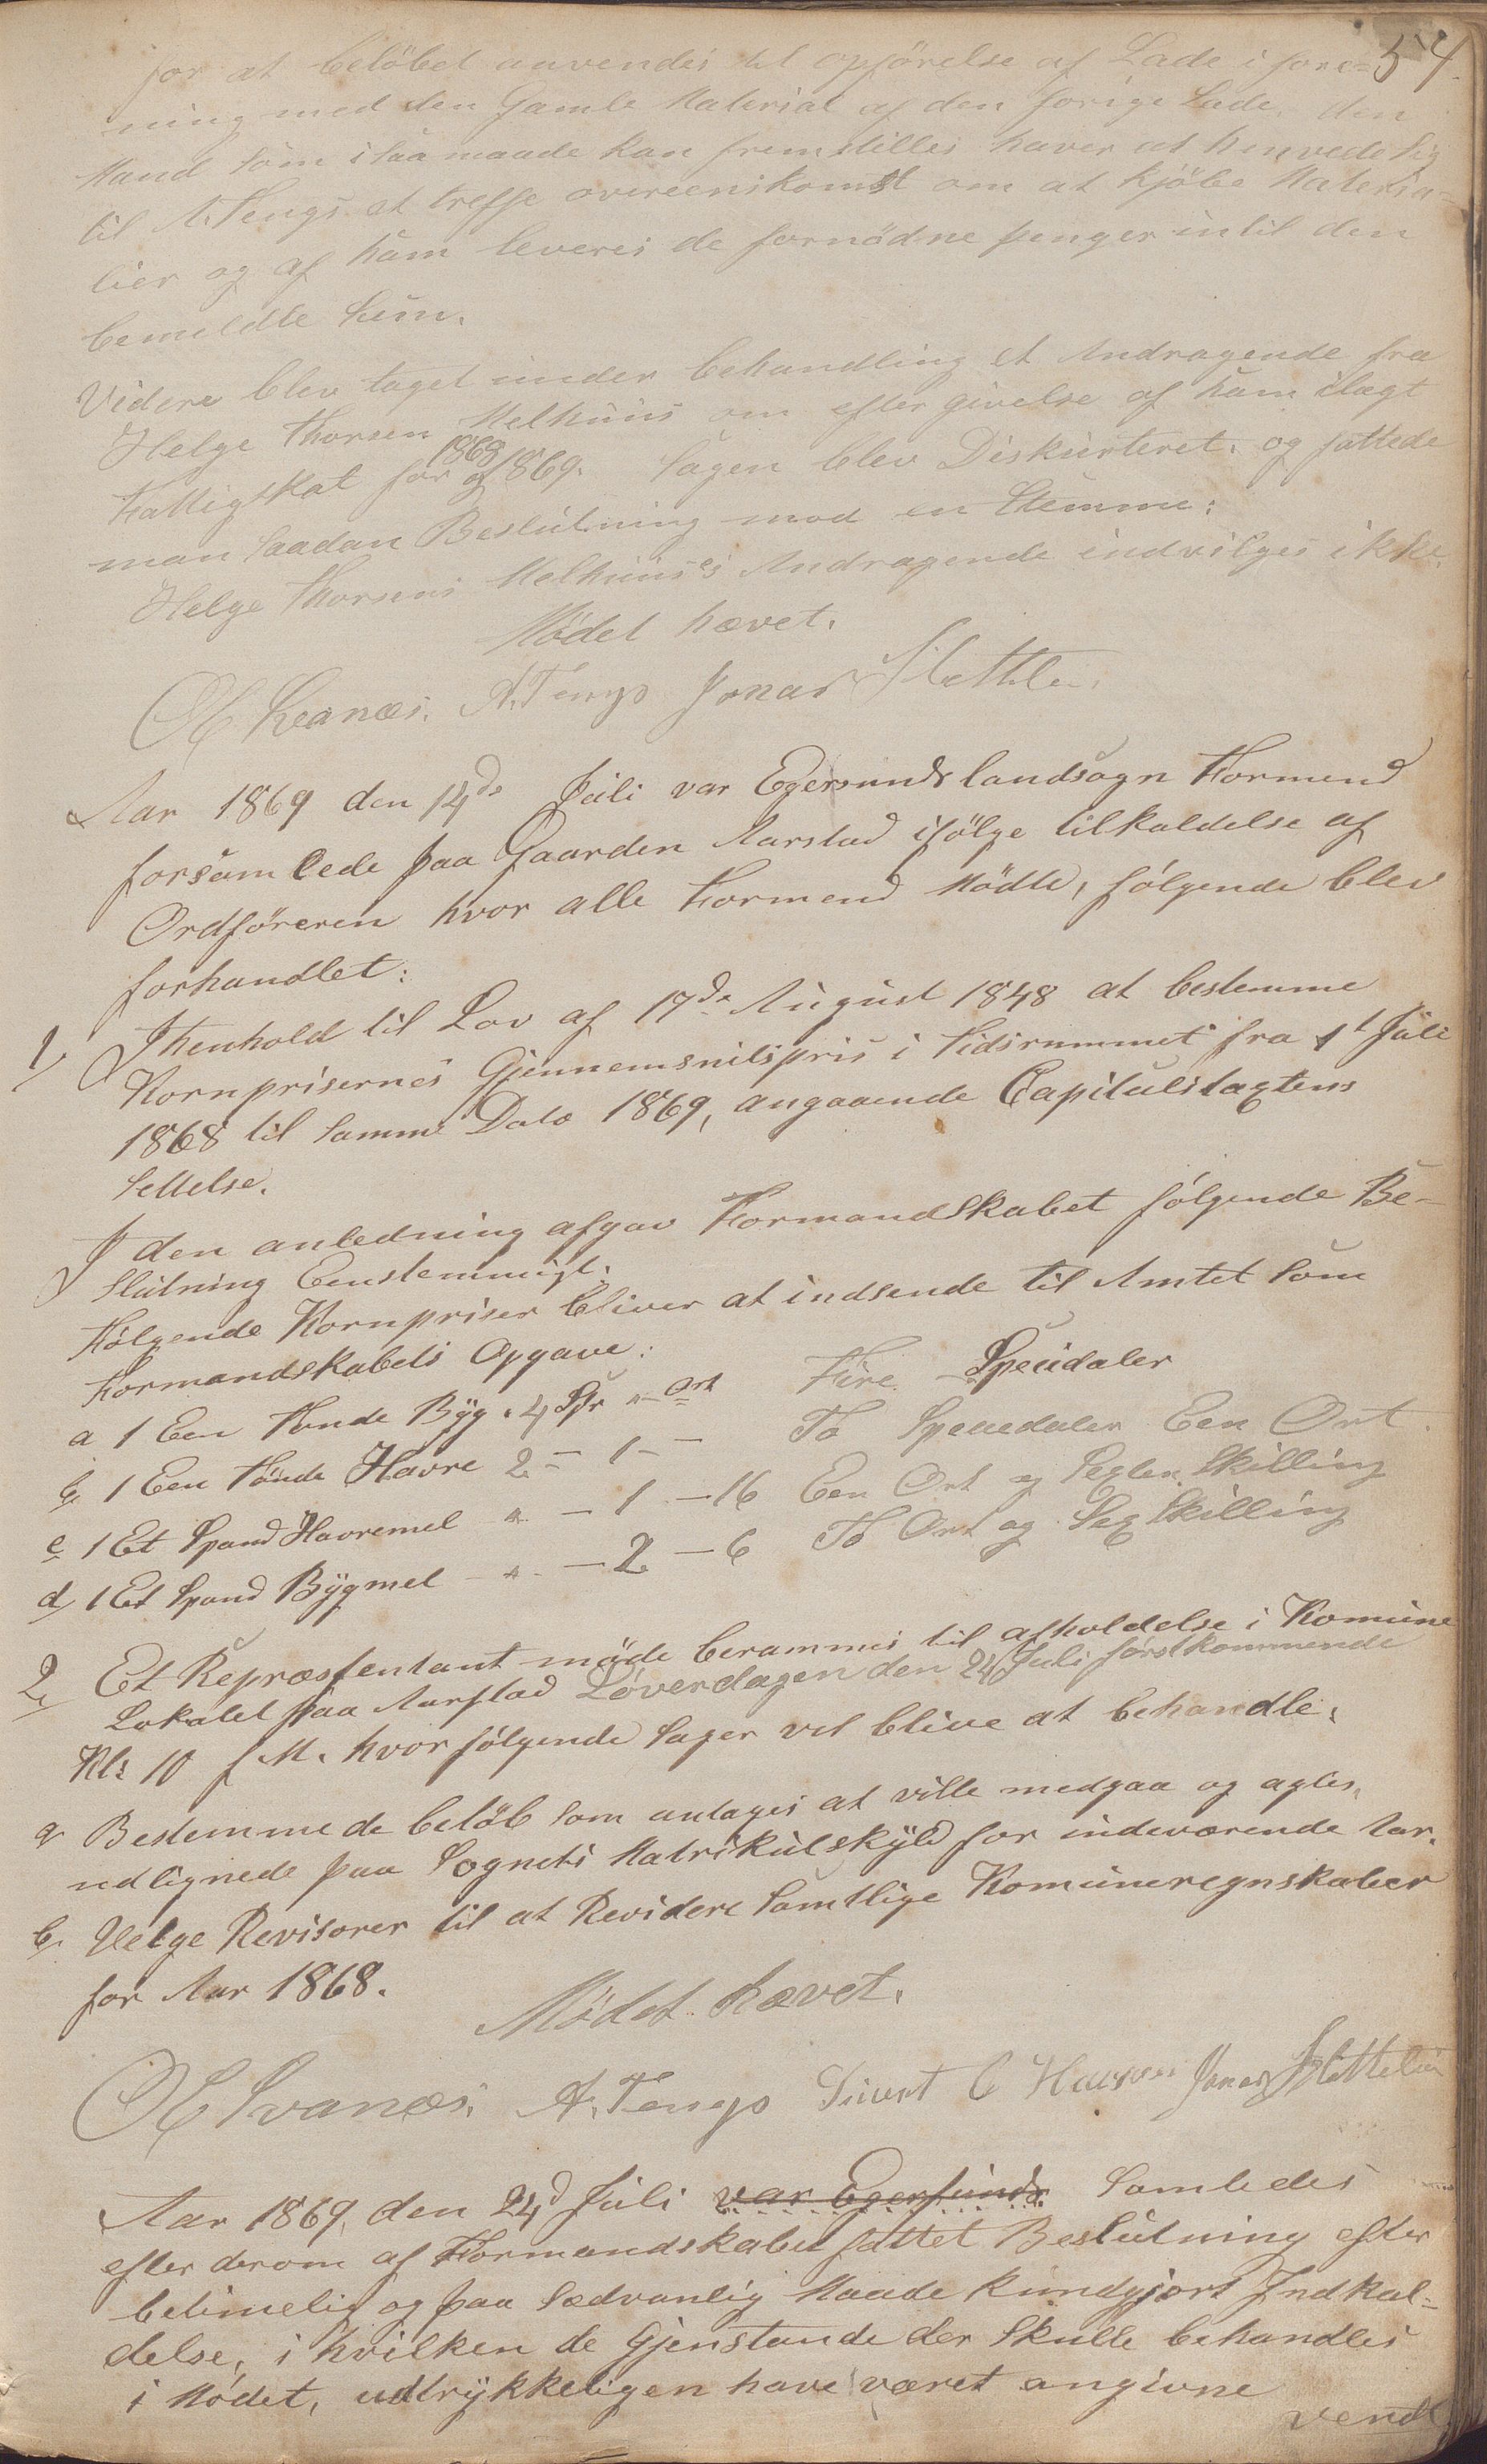 54.
for at belöbet anvendes til opförelse af Lade i fore-
ning med den Gamle Material af den forige Lade, den
Mand som i saamaade kan fremstilles haver at henvede sig
til A. Tengs at treffe overeenskomst om at kjöbe Materia-
lier og af ham leveres de fornödne penger intil den
bemeldte Sum.
Videre blev taget under behandling et Andragende fra
Helge Thorsen Melhuus om efter givelse af ham ilagt
Fattigskat for 1868 og 1869. Sagen blev Diskurteret, og fattede
man saadan Beslutning mod en Stemme:
Helge Thorsens Melhuus's Andragende indvilges ikke.
Mödet hævet.
O E Svanæs. A. Tengs Jonas Slettebø
Aar 1869 den 14de Juli var Egersunds landsogn Formend
forsamlede paa Gaarden Aarstad ifölge tilkaldelse af
Ordföreren hvor alle Formend Mödte, fölgende blev
forhandlet:
1, I henhold til Lov af 17de August 1848 at bestemme
Kornprisernes Gjennemsnitspris i Tidsrummet fra 1t Juli
1868 til samme Dato 1869, angaaende Capitulstaxtens
settelse.
I den anledning afgav Formandskabet fölgende Be-
slutning Eenstemmigt:
Fölgende Kornpriser bliver at indsende til Amtet som
Formandskabets Opgave:
a 1 Een Tönde Byg . 4 Spr " Ort Fire Speidaler
b, 1 Een Tönde Havre 2 - 1 - - To Speciedaler Een Ort.
c 1 Et Spand Havremel " - 1 - 16 Een Ort og Sexten Skilling
d, 1 Et Spand Bÿgmel - " - 2 - 6 To Ort og Sex Skilling
2, Et Repræsentant möde berammes til afholdelse i Komune
Lokalet paa Aarstad Löverdagen den 24 Juli förstkommende
Kl: 10 f M. hvor fölgende Sager vil blive at behandle.
a Bestemme de belöb som antages at ville medgaa og agtes
udlignede paa Sognets Matrikulskÿld for indeværende Aar.
b, Velge Revisorer til at Revidere Samtlige Komuneregnskaber
for Aar 1868.
Mödet hævet.
O E Svanæs. A. Tengs Sivert C Hansen Jonas Slettebø
Aar 1869, den 24d Juli var Egersunds Samledes
efter derom af Formandskabet fattet Beslutning efter
betimelig og paa Sædvanlig Maade kundgjort Indkal-
delse, i hvilken de Gjenstande der Skulle behandles
i Mödet, udtrÿkkeligen have været angivne
vend